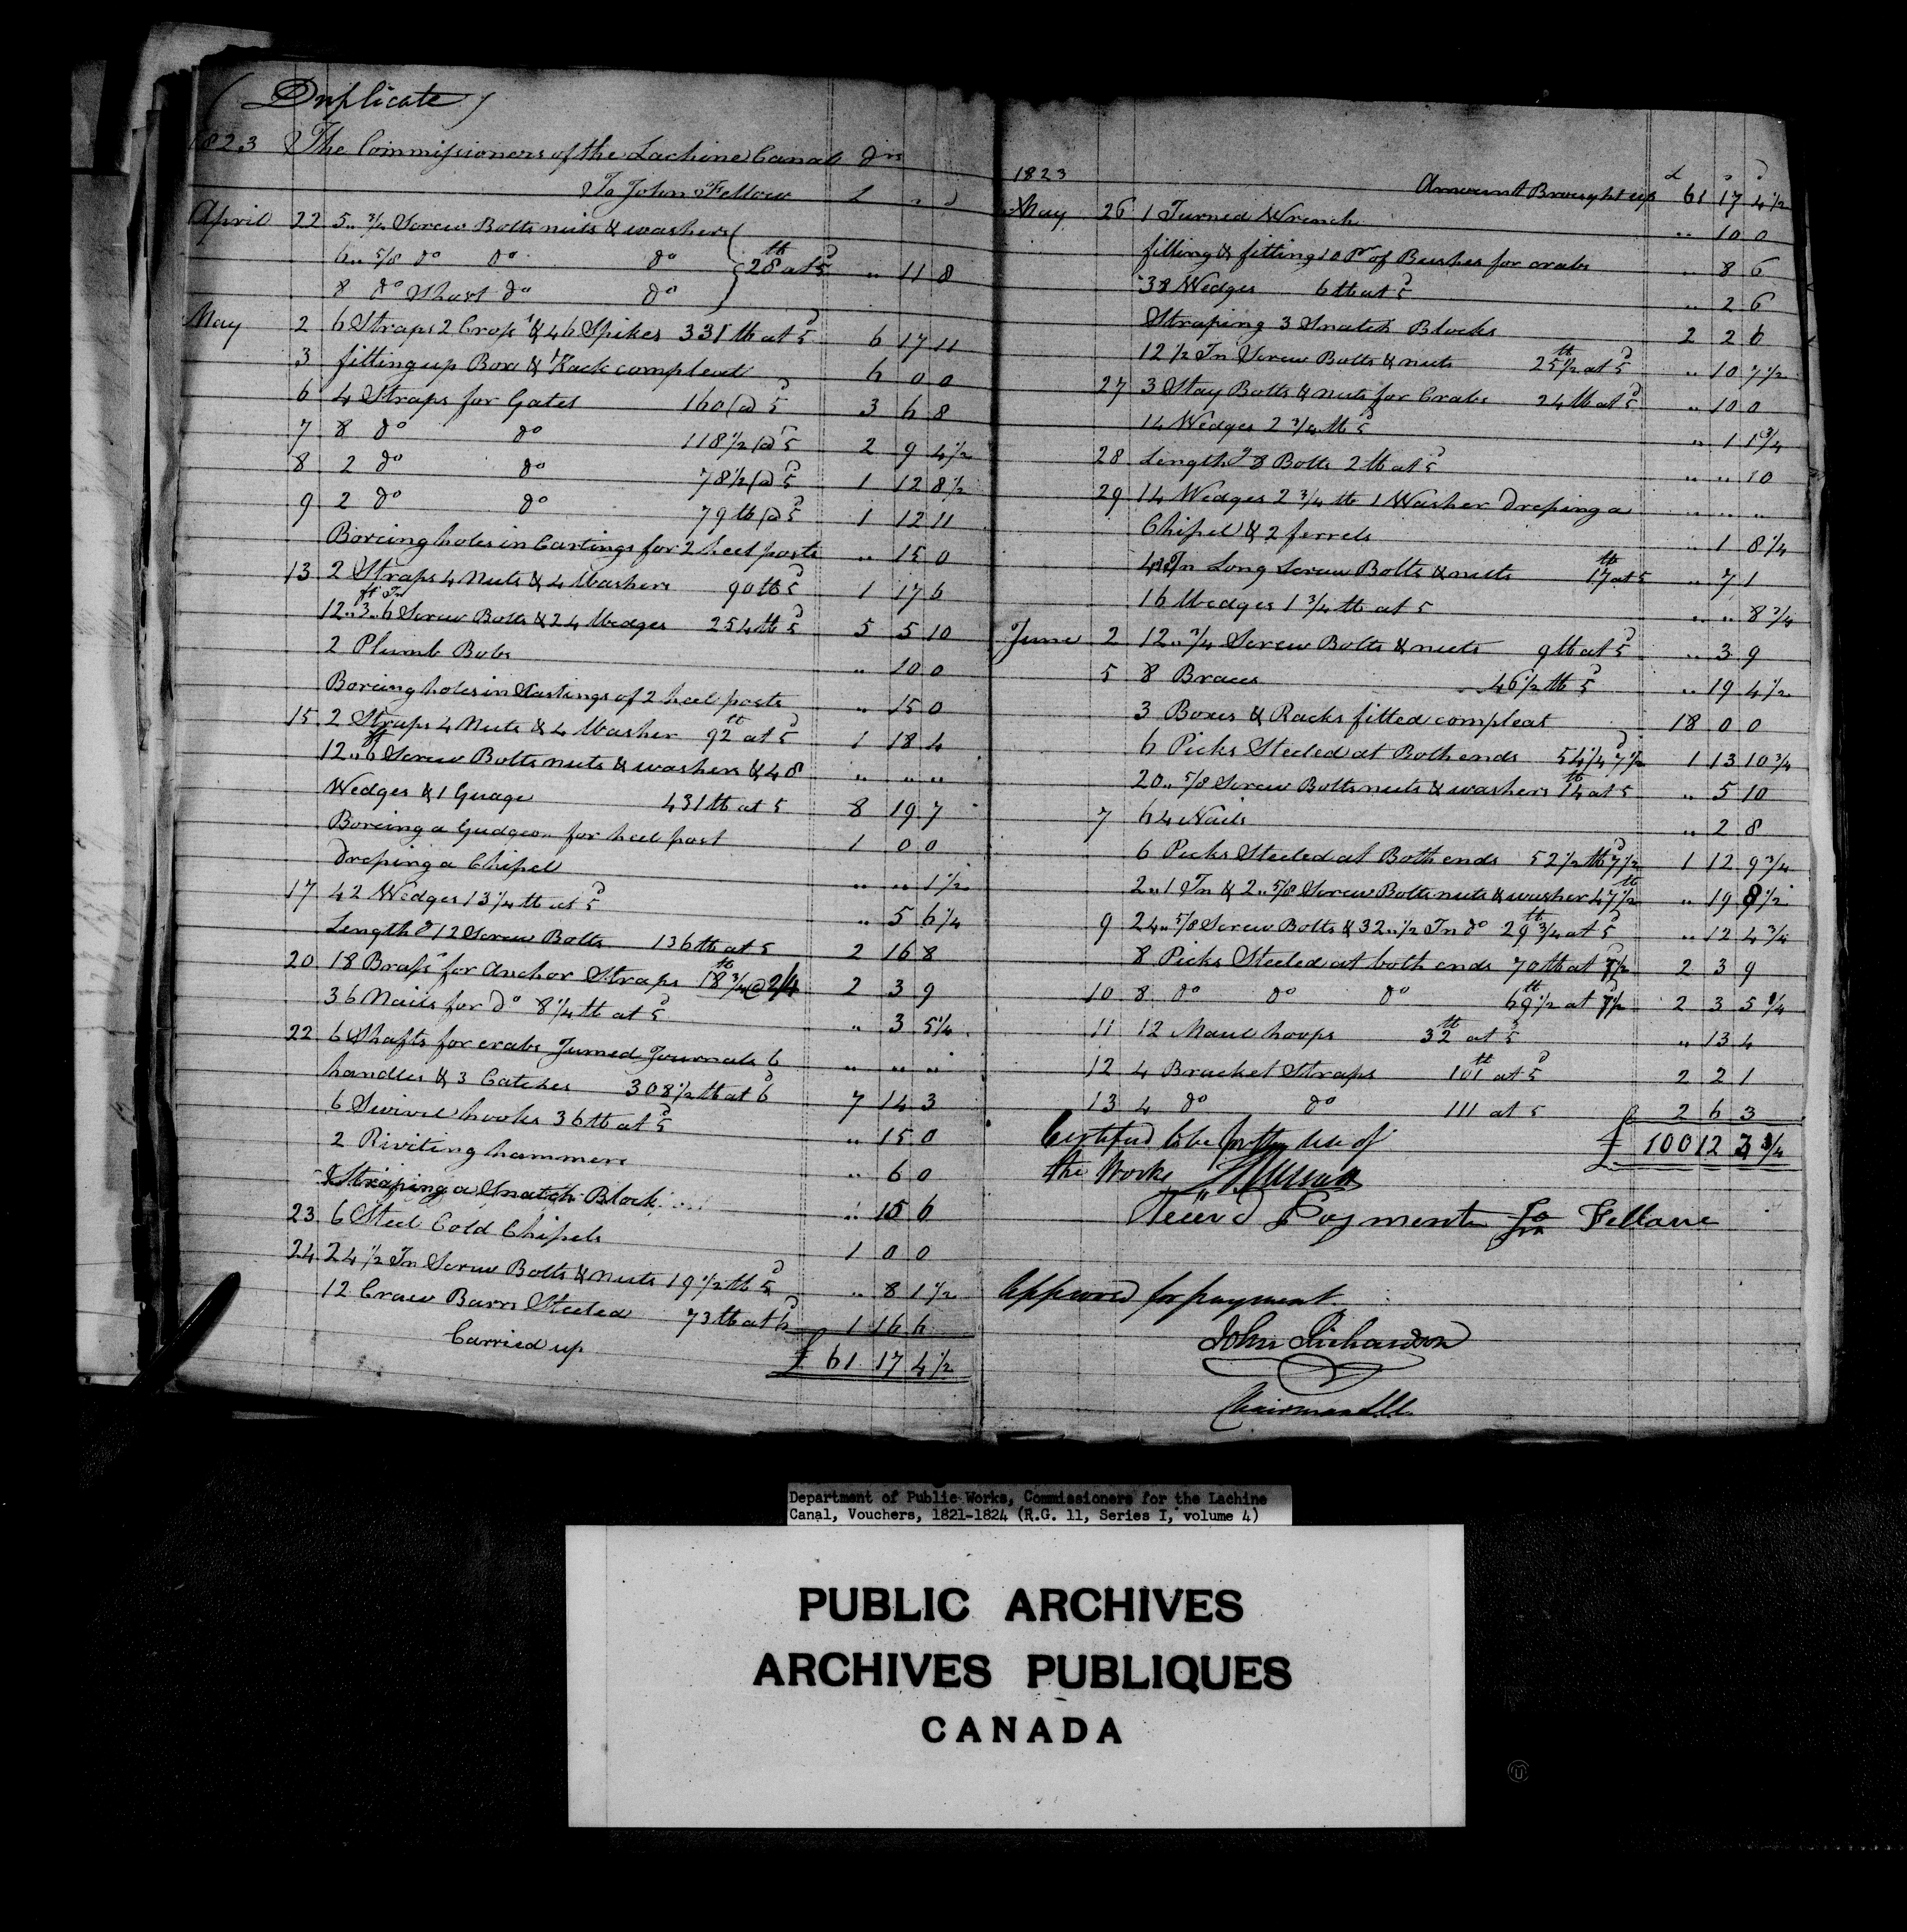 (Duplicate)
1823 The Commissioners of the Lachine Canal Dr
To John Fellow £ " "
April 22 5.. 3/4 Screw Bolts nuts & washers
6.. 5/8 do do do 28 lb at 5d .. 11 8
8 do Short do do
May 2 6 Straps 2 Crops & 46 Spikes 331 lb at 5d 6 17 11
3 fitting up Box & Rack compleat 6 0 0
6 4 Straps for Gates 160 @ 5d 3 6 8
7 8 do do 118 1/2 @ 5d 2 9 4 1/2
8 2 do do 78 1/2 @ 5d 1 12 8 1/2
9 2 do do 79 lb @ 5d 1 12 11
Boreing holes in Castings for 2 heel posts .. 15 0
13 2 Straps 4 Nuts & 4 Washers 90 lb 5d 1 17 6
12.. 3 ft.. 6 In Screw Bolts & 24 Wedges 254 lb 5d 5 5 10
2 Plumb Bobs .. 10 0
Boreing holes in Castings of 2 heel posts .. 15 0
15 2 Straps 4 Nuts & 4 Washer 92 lb at 5d 1 18 4
12.. 6 ft Screw Bolts nuts & washers & 48 .. .. ..
Wedges & 1 Guage 431 lb at 5 8 19 7
Boreing a Gudgeon for heel post 1 0 0
Dresping a Chipel .. .. 1 1/2
17 42 Wedges 13 1/4 lb at 5d .. 5 6 1/4
Length d 12 Screw Bolts 136 lb at 5 2 16 8
20 18 Brass for Anchor Straps 18 3/4 lb @ 2/4 2 3 9
36 Nails for do 8 1/4 lb at 5d .. 3 5 1/4
22 6 Shafts for crabs Turned Journals 6 .. .. ..
handles & 3 Catches 308 1/2 lb at 6d 7 14 3
6 Swivel hooks 36 lb at 5d .. 15 0
2 Riviting hammers .. 6 0
Straping a Snatch Block .. 15 6
23 6 Steel Cold Chipels 1 0 0
24 24 1/2 In Screw Bolts & Nuts 19 1/2 lb 5d .. 8 1 1/2
12 Craw Barrs Steeled 73 lb at 6d 1 16 6
Carried up £ 61 17 4 1/2
1823 £ s d
Amount Brought up 61 17 4 1/2
May 26 1 Turned Wrench .. 10 0
filling & fitting 10 Pr of Bushes for crabs .. 8 6
38 Wedges 6 lb at 5d .. 2 6
Straping 3 Snatch Blocks 2 2 6
12 1/2 In Screw Bolts & nuts 25 1/2 lb at 5d .. 10 7 1/2
27 3 Stay Bolts & nuts for Crabs 24 lb at 5d .. 10 0
14 Wedges 2 3/4 lb 5d .. 1 1 3/4
28 Length d 8 Bolts 2 lb at 5d .. .. 10
29 14 Wedges 2 3/4 lb 1 Washer Dresping a .. .. ..
Chipel & 2 ferrels .. 1 8 1/4
In Long Screw Bolts & nuts 17 lb at 5 .. 7 1
16 Wedges 1 3/4 lb at 5 .. .. 8 3/4
June 2 12.. 3/4 Screw Bolts & nuts 9 lb at 5d .. 3 9
5 8 Braces 46 1/2 lb 5d .. 19 4 1/2
3 Boxes & Racks fitted compleat 18 0 0
6 Picks Steeled at Both ends 54 1/4 7 1/2d 1 13 10 3/4
20.. 5/8 Screw Bolts nuts & washers 14 lb at 5 .. 5 10
7 64 Nails .. 2 8
6 Picks Steeled at Both ends 52 1/2 lb 7 1/2d 1 12 9 3/4
2.. 1 In & 2.. 5/8 Screw Bolts nuts & washer 47 1/2 lb .. 19 9 1/2
9 24.. 5/8 Screw Bolts & 32.. 1/2 In do 29 3/4 lb at 5d .. 12 4 3/4
8 Picks Steeled at both ends 70 lb at 7 1/2 2 3 9
10 8 do do do 69 1/2 lb at 7 1/2 2 3 5 1/4
11 12 Maul hoops 32 lb at 5d .. 13 4
12 4 Bracket Straps 101 lb at 5d 2 2 1
13 4 do do 111 at 5 2 6 3
£ 100 12 3 3/4
Certified to be for the use of
the Works
Receivd Payment Jn Fellowe
Approved for payment
John Richardson
Chairman
Department of Public Works, Commissioners for the Lachine
Canal, Vouchers, 1821-1824 (R.G. 11, Series I, volume 4)
PUBLIC ARCHIVES
ARCHIVES PUBLIQUES
CANADA